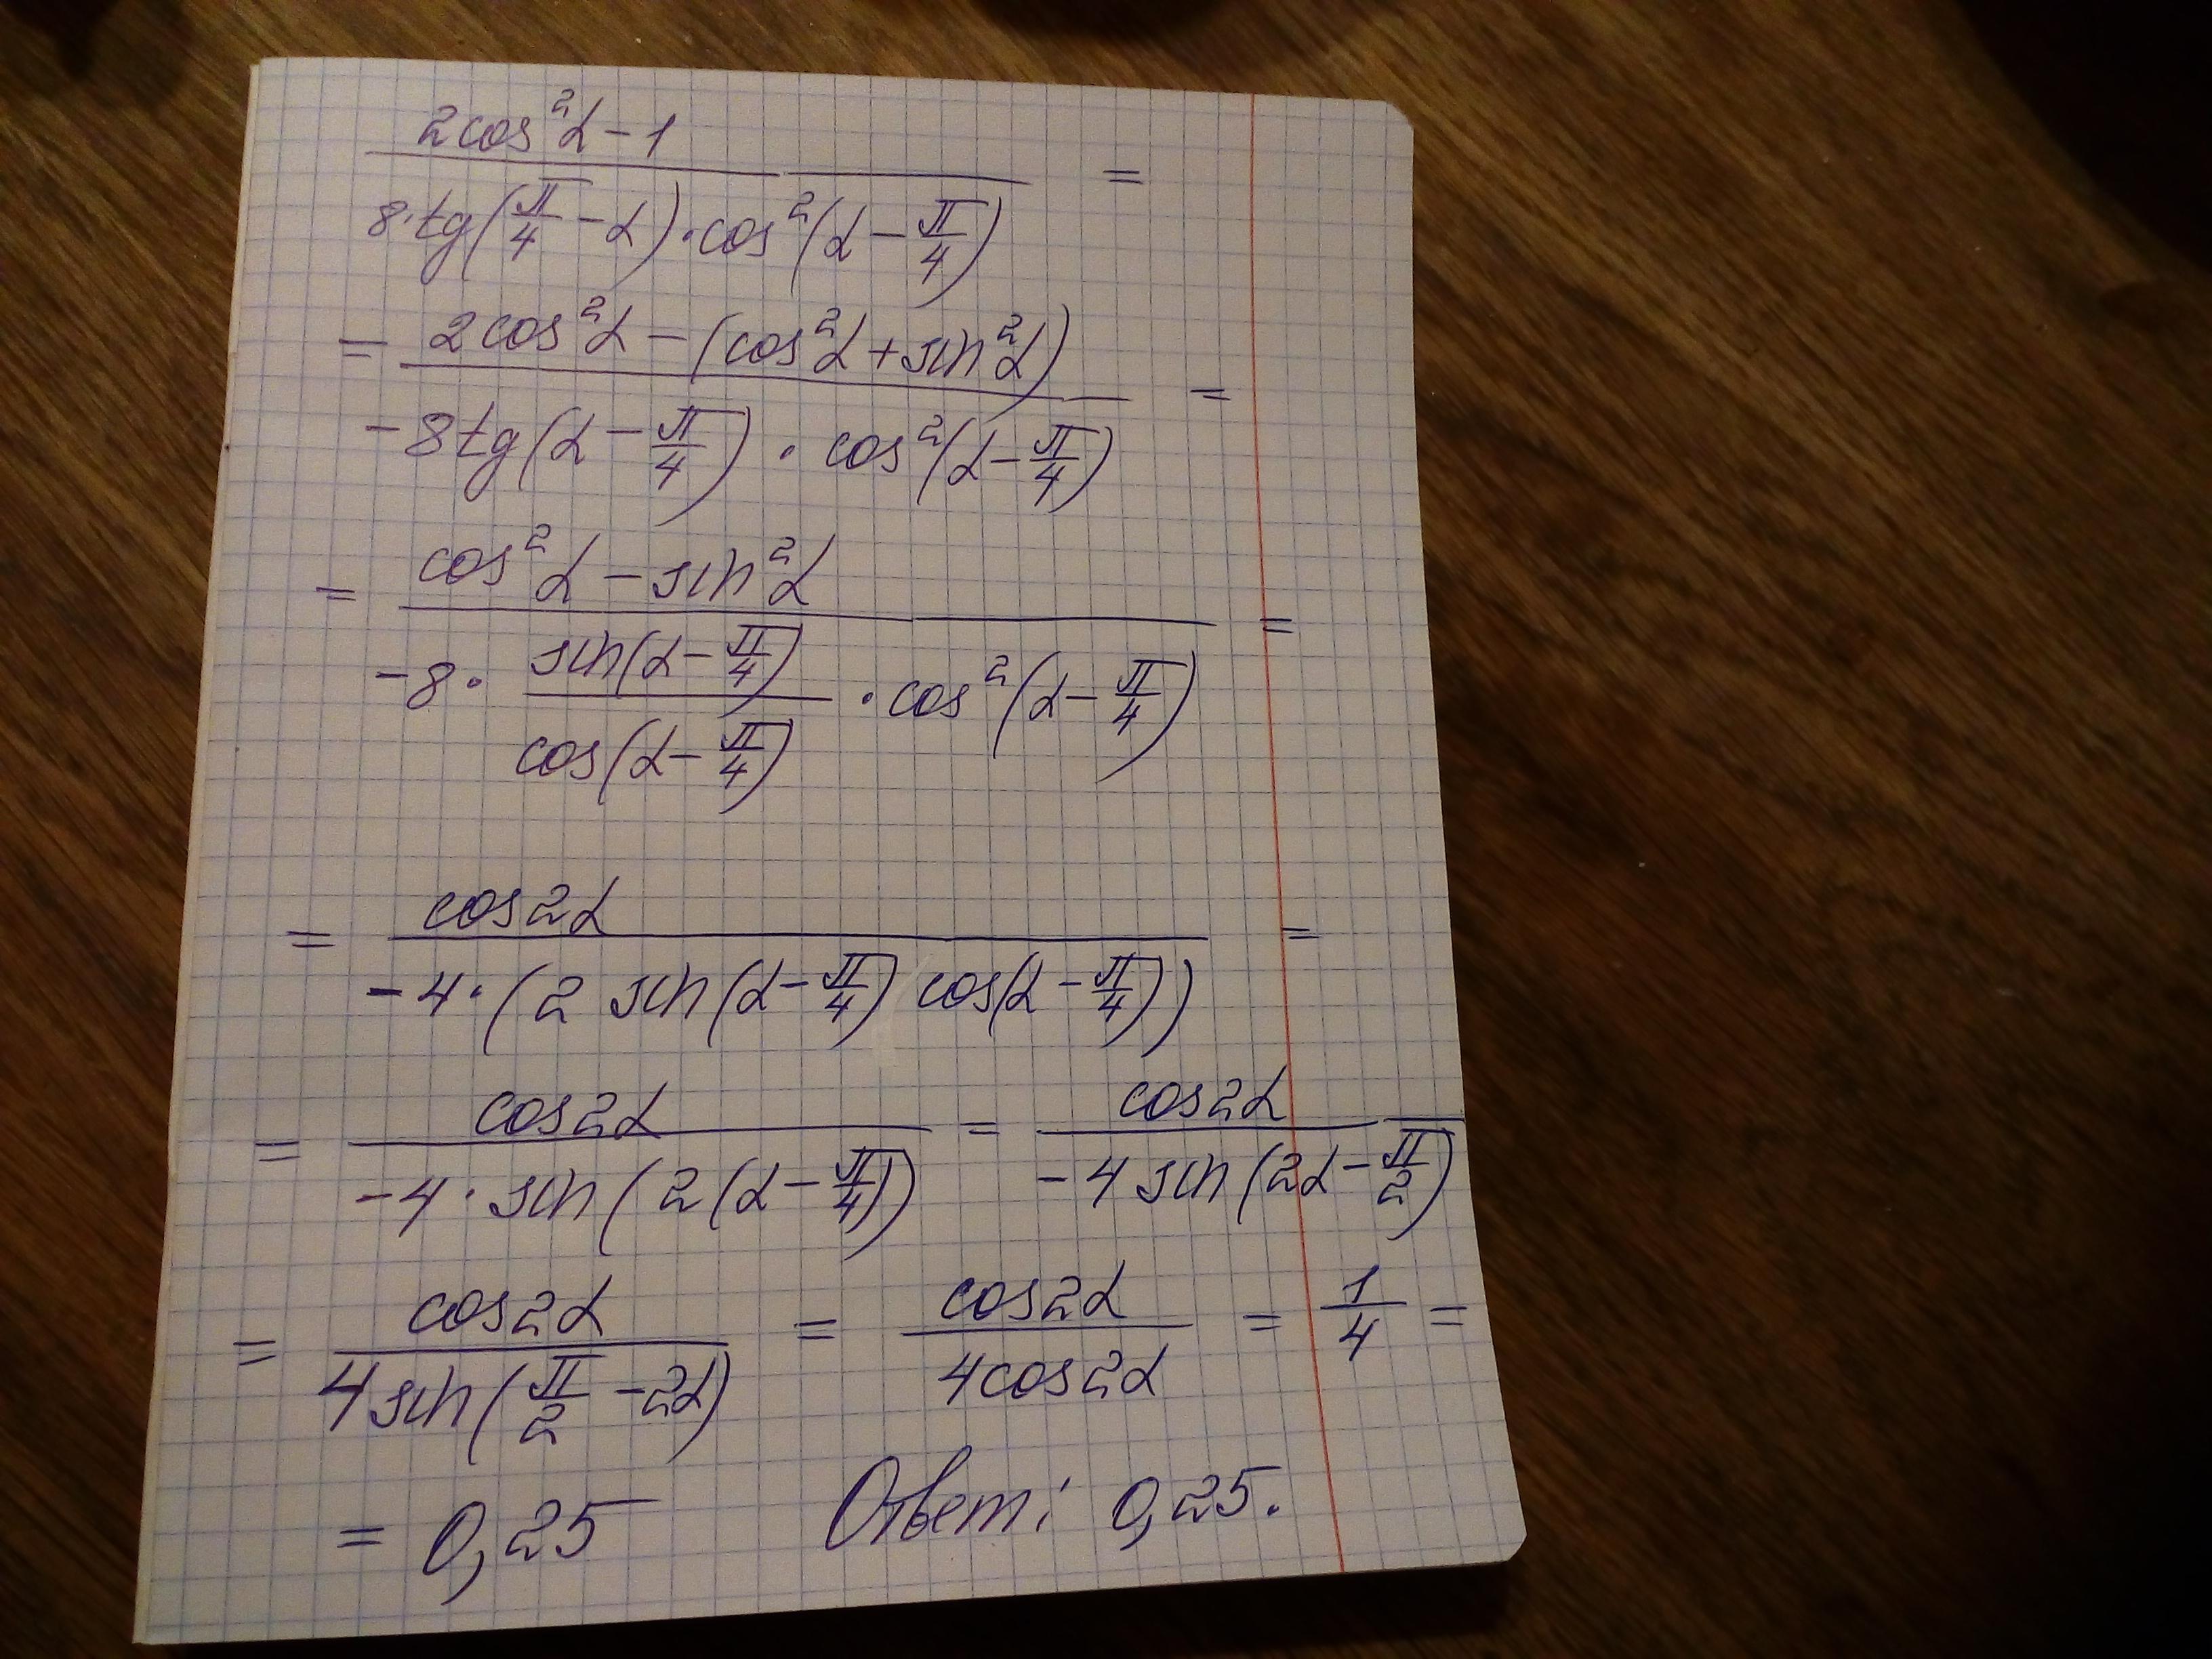 (2cos²α − 1) / (8·tg(π/4 − α)·cos²(α − π/4)) =
= (2cos²α − (cos²α + sin²α)) / (−8tg(α − π/4) · cos²(α − π/4)) =
= (cos²α − sin²α) / (−8 · sin(α − π/4) / cos(α − π/4) · cos²(α − π/4)) =
= cos2α / (−4·(2 sin(α − π/4) cos(α − π/4))) =
= cos2α / (−4 · sin(2(α − π/4))) = cos2α / (−4 sin(2α − π/2))
= cos2α / (4 sin(π/2 − 2α)) = cos2α / (4cos2α) = 1/4 =
= 0,25 Ответ: 0,25.